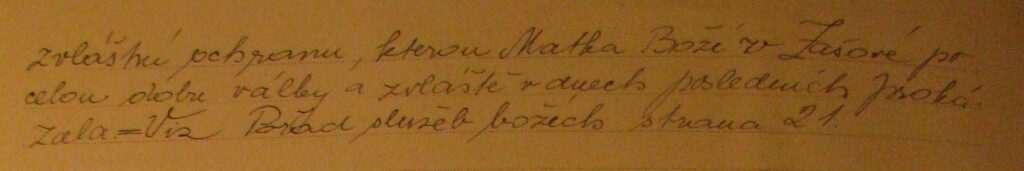 zvláštní ochranu, kterou Matka Boží v Zašové po
celou dobu války a zvláště v dnech posledních proká-
zala = Viz Pořad služeb božích strana 21.